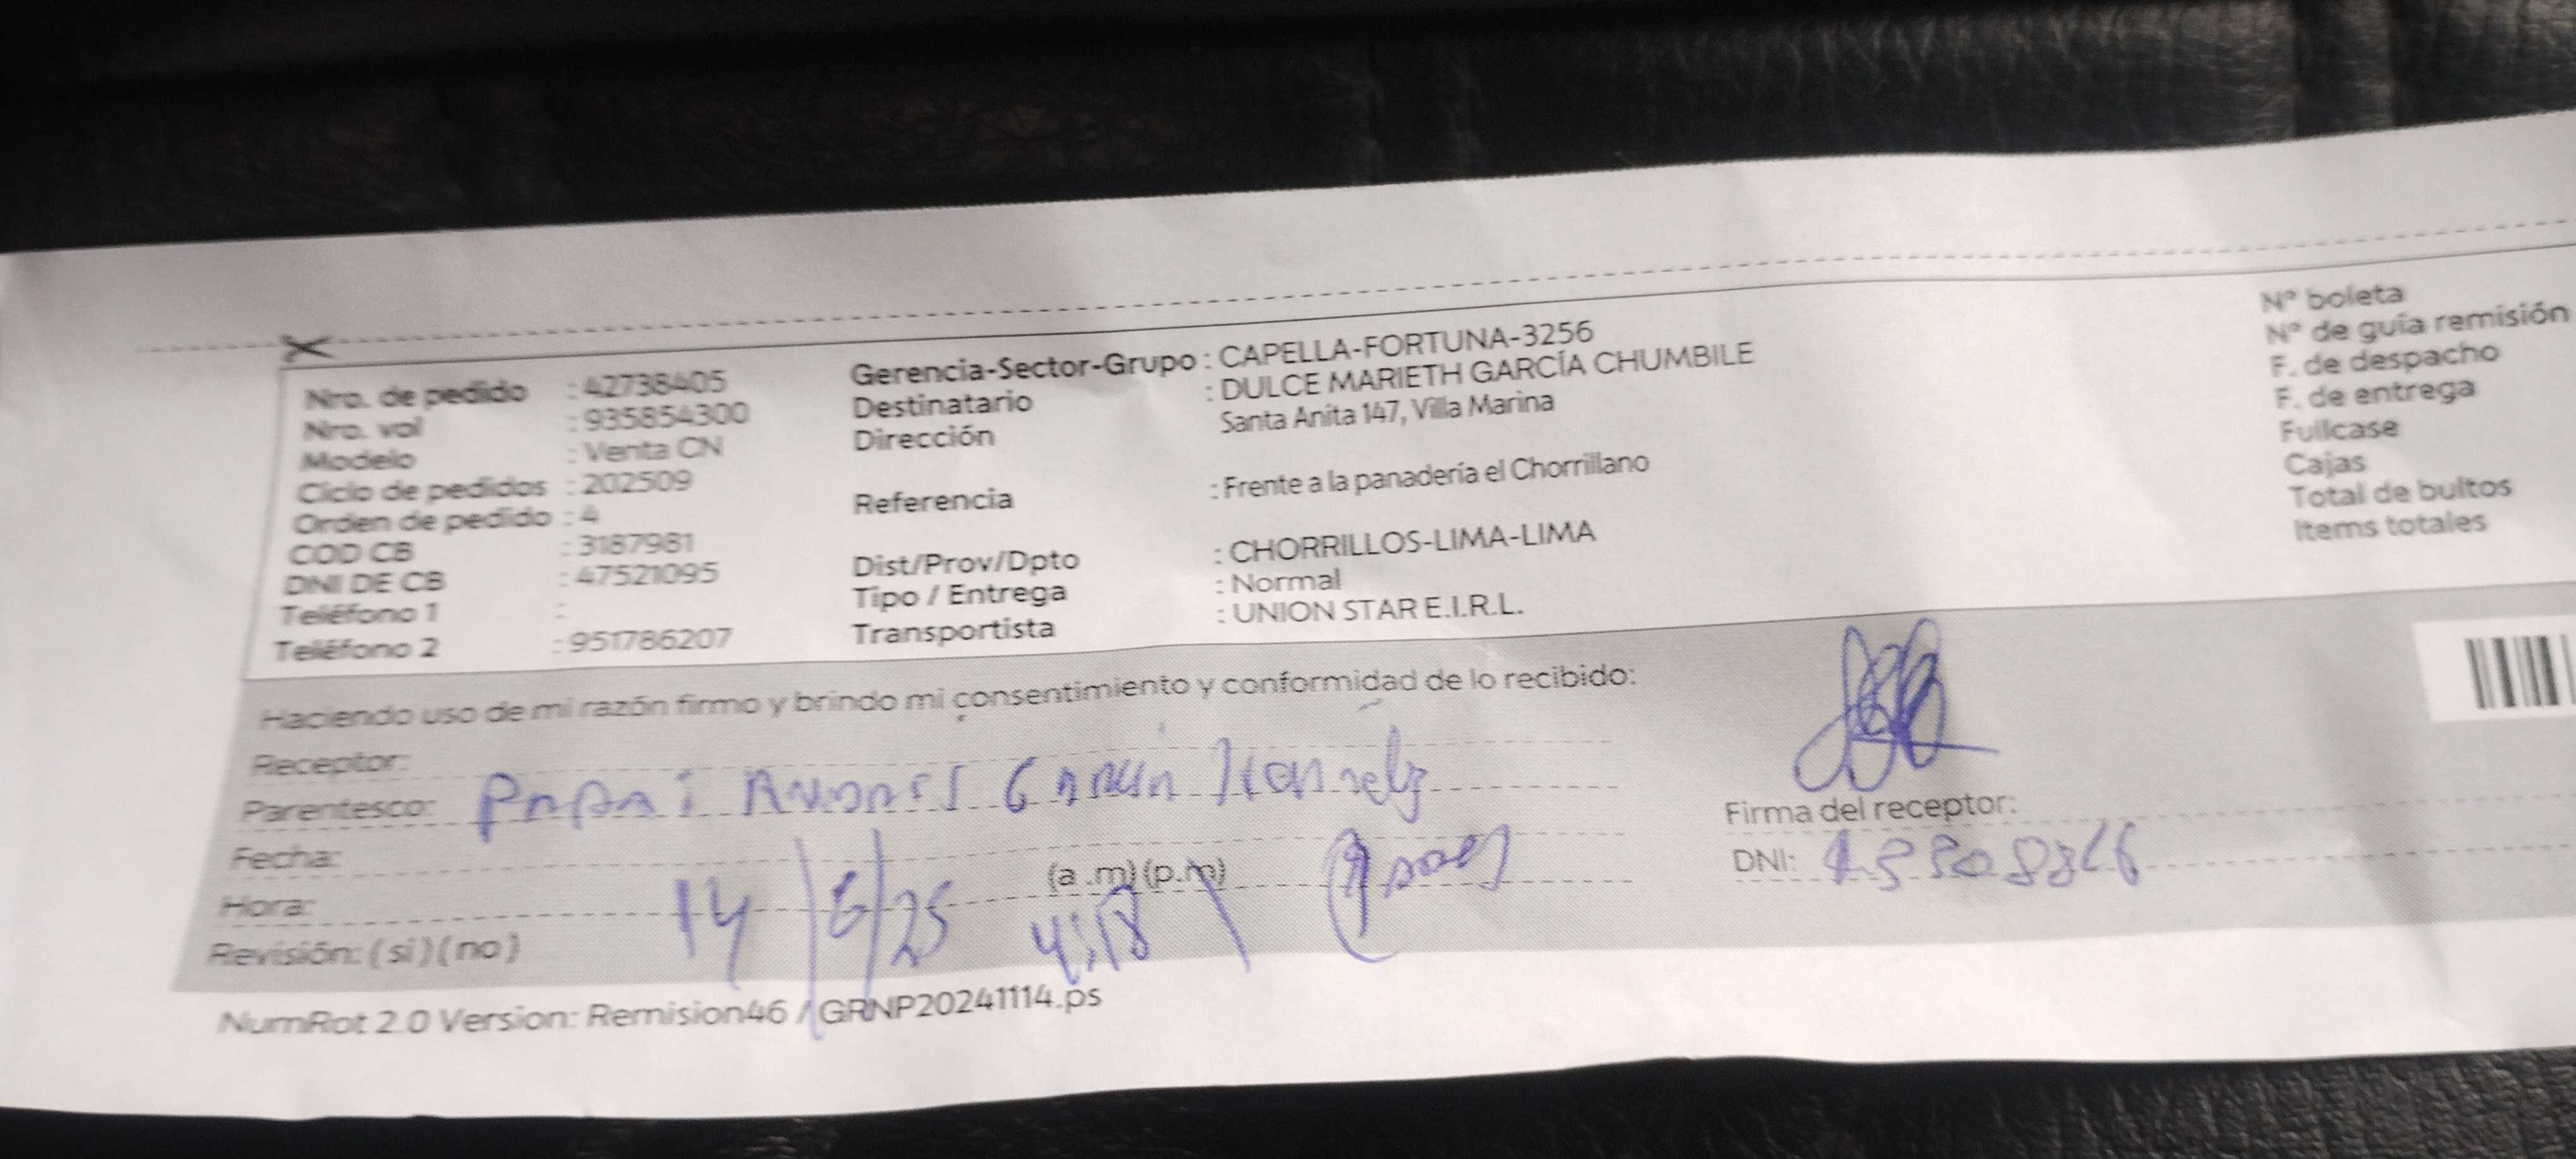 Nro. de pedido : 42738405
Nro. vol : 935854300
Modelo : Venta CN
Ciclo de pedidos : 202509
Orden de pedido : 4
COD CB : 3187981
DNI DE CB : 47521095
Teléfono 1 :
Teléfono 2 : 951786207
Gerencia-Sector-Grupo : CAPELLA-FORTUNA-3256
Destinatario : DULCE MARIETH GARCÍA CHUMBILE
Dirección Santa Anita 147, Villa Marina
Referencia : Frente a la panadería el Chorrillano
Dist/Prov/Dpto : CHORRILLOS-LIMA-LIMA
Tipo / Entrega : Normal
Transportista : UNION STAR E.I.R.L.
N° boleta
N° de guía remisión
F. de despacho
F. de entrega
Fullcase
Cajas
Total de bultos
Items totales
Haciendo uso de mi razón firmo y brindo mi consentimiento y conformidad de lo recibido:
Receptor:
Parentesco: PAPA
Fecha:
Hora: (a .m)(p.m)
14/6/25 4:18
Revisión: (si)(no)
Firma del receptor:
DNI:
NumRot 2.0 Version: Remision46 / GRNP20241114.ps